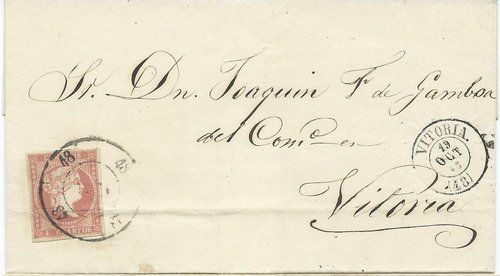 Sr. Dn. Joaquin F. de Gamboa
del Comº en
Vitoria
VITORIA.
19
OCT
(48)
48
48
4 CUARTOS